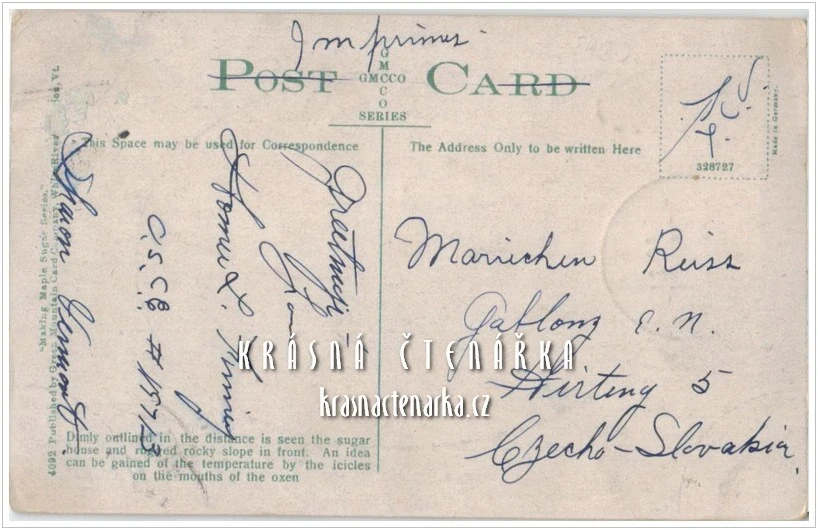 Imprimés
POST CARD
GMCCO
GMCCO
SERIES
This Space may be used for Correspondence
The Address Only to be written Here
328727
Made in Germany.
Greetings
from
Homer L.
C.S.C.B. #
Sharon Vermont
Mariechen Reiss
Gablonz E. N.
5
Czecho-Slovakia
KRÁSNÁ ČTENÁŘKA
krasnactenarka.cz
Dimly outlined in the distance is seen the sugar
house and rocky slope in front. An idea
can be gained of the temperature by the icicles
on the mouths of the oxen
"Making Maple Sugar Series."
4092 Published by Green Mountain Card Company, White River Vt.